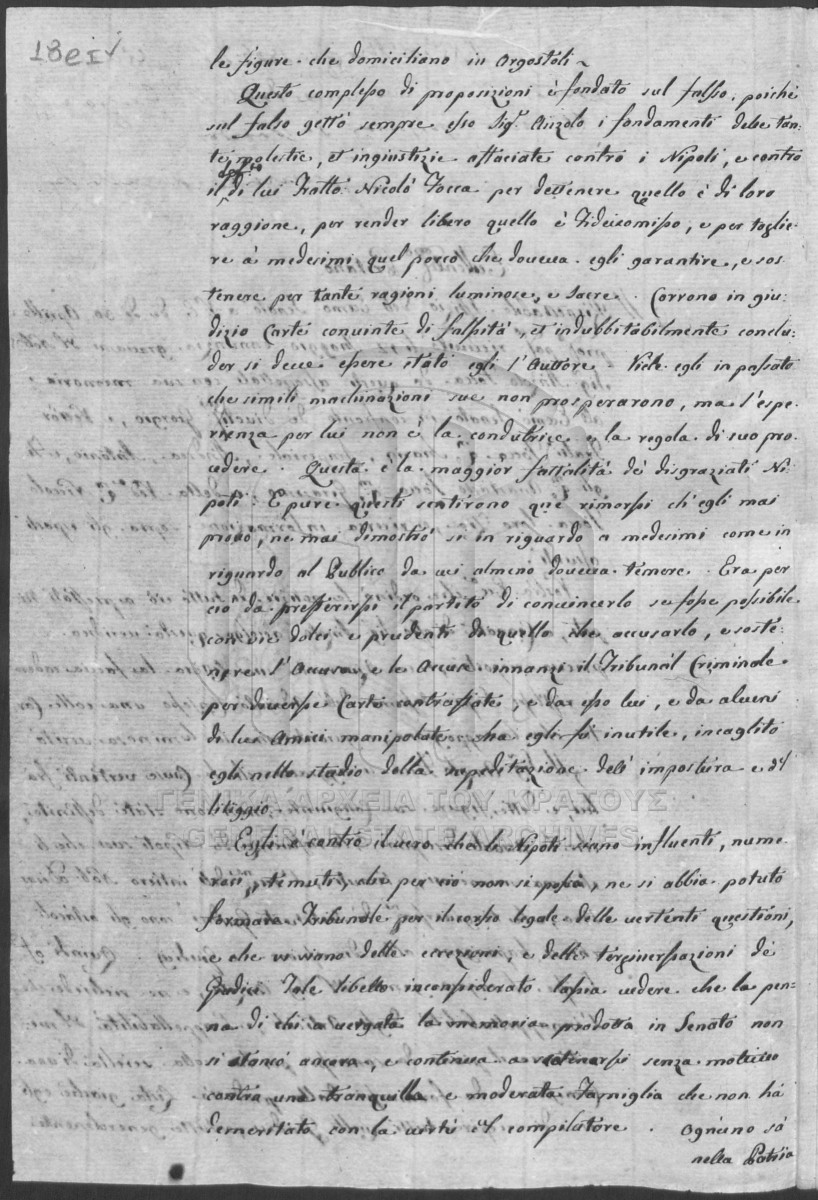 18
le figure che domiciliano in Argostoli
Questo complesso di proposizioni è fondato sul falso, poichè
sul falso gettò sempre esso Sigr. Anzolo i fondamenti delle tan-
te molestie, et ingiustizie affaciate contro i Nipoti, e contro
il di lui Fratto: Nicolò Focca per dettenere quello è di loro
raggione, per render libero quello è Fideicomisso, e per toglie-
re à medesimi quel porco che doveva egli garantire, e sos-
tenere per tante ragioni luminose, e sacre. Corrono in giu-
dizio Carte convinte di falsità, et indubbitabilmente conclu-
der si deve essere stato egli l'Auttore. Vide egli in passato
che simili machinazioni sue non prosperarono, ma l'espe-
rienza per lui non è la condutrice e la regola di suo pro-
cedere. Questa è la maggior fattalità dè disgraziati Ni-
poti. E pure questi sentirono què rimorsi ch'egli mai
provò, ne mai dimostrò si in riguardo a medesimi come in
riguardo al Publico da cui almeno doveva temere. Era per
ciò da prefferirsi il partito di convincerlo se fosse possibile
con vie dolci e prudenti di quello che accusarlo, e soste-
nere l'Accusa, e le Accuse innanzi il Tribunal Criminale
per diverse Carte contraffate, e da esso lui, e da alcuni
di lui Amici manipolate: ma egli fù inutile, incaglitò
egli nello stadio della suppeditazione dell' impostura e del
litiggio.
Egli è contro il vero che li Nipoti siano influenti, nume-
rosi, temuti, che per ciò non si possa, ne si abbia potuto
formare Tribunale per il corso legale delle vertenti questioni,
e che vi siano delle eccezioni, e delle tergiversazioni dè
Giudici. Tale libello inconsiderato lascia vedere che la pen-
na di chi a vergata la memoria prodotta in Senato non
si stancò ancora, e continua a senza motivo
contro una tranquilla e moderata Famiglia che non hà
demeritato con la virtù del compilatore. Ognuno sà
nella Patria
ΓΕΝΙΚΑ ΑΡΧΕΙΑ ΤΟΥ ΚΡΑΤΟΥΣ
GENERAL STATE ARCHIVES